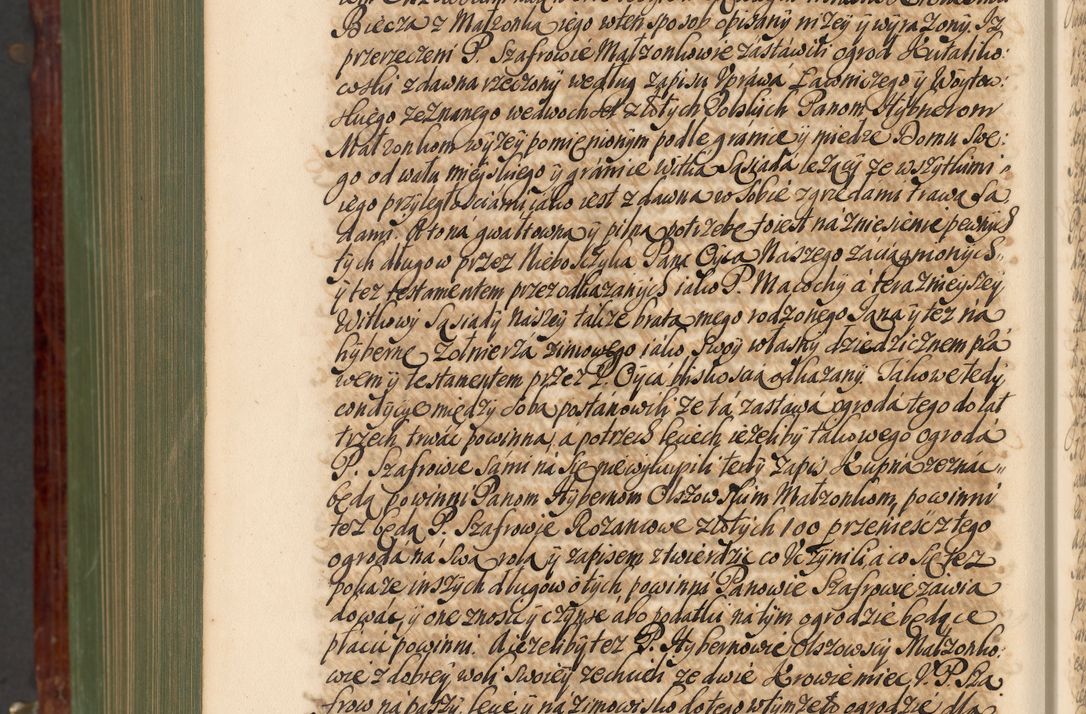 Biecza z Małzonką iego wten sposob opisany nizey ÿ wyrazony. Jz
przerzeczeni P. Szafrowie Małzonkowie zastawili ogrod Kutalko:
coski zdawna rzeczony według zapisu Vprawá Ławniczego ÿ Woytow:
skiego zeznanego we dwochset złotych Polskich Panom Hybnerom
Małzonkom wyzeÿ pomięnionym podle granice ÿ miedze Domu Swe:
go od wału mieÿskiego ÿ gránice Witka Sąsiadá lezący ze wszytkimi
iego przyległosciámi iáko iest zdawna w sobie zgrzędami trawą Sa
dami. A to ná gwałtowną ÿ pilną potrzebę to iest na zniesienie pewnych
tych długow przez Nieboszczyka Pana Oÿca Naszego záciągnionych
ÿ tez testamentem przez odkazanych iako P. Macochy á teraznieyszey
Witkowÿ Sąsiady Naszeÿ także brata mego rodzonego Jana ÿ tez ná
hybernę Zołnierzá zimowego iako Swoÿ własnÿ dziedzicznem prá
wem ÿ testamentem przez P. Oÿcá nieboszczá odkazanÿ. Takowe tedÿ
condÿcÿe międzÿ sobą postánowili ze tá zastawá ogrodá tego do lat
trzech trwác powinna, á po trzech leciech iezeliby takowego ogrodá
P. Szafrowie sámi ná się nie wykupili tedy zapis Kupna zeznác
będą powinni Panom Hÿbernom Olszowskim Małzonkom, powinni
tez będą P. Szafrowie Rozancowe złotych 100 przenieść z tego
ogroda ná Swą rolą ÿ zapisem ztwierdzic co Vczynili, á co się tez
pokaze inszych długow o tych powinni Panowie Szafrowie zawia
dowác, ÿ one znosic ÿ czynsze abo podatki na tÿm ogrodzie będące
płácic powinni. A iezeliby tez P. Hybernowie Olszowscy Małzonko:
wie z dobreÿ woli Swoieÿ zechcieli ze dwie Krowie miec V. P. Sza
frow na paszÿ lecie ÿ ná zimowisko do tego w tÿmze to ogrodzie dla